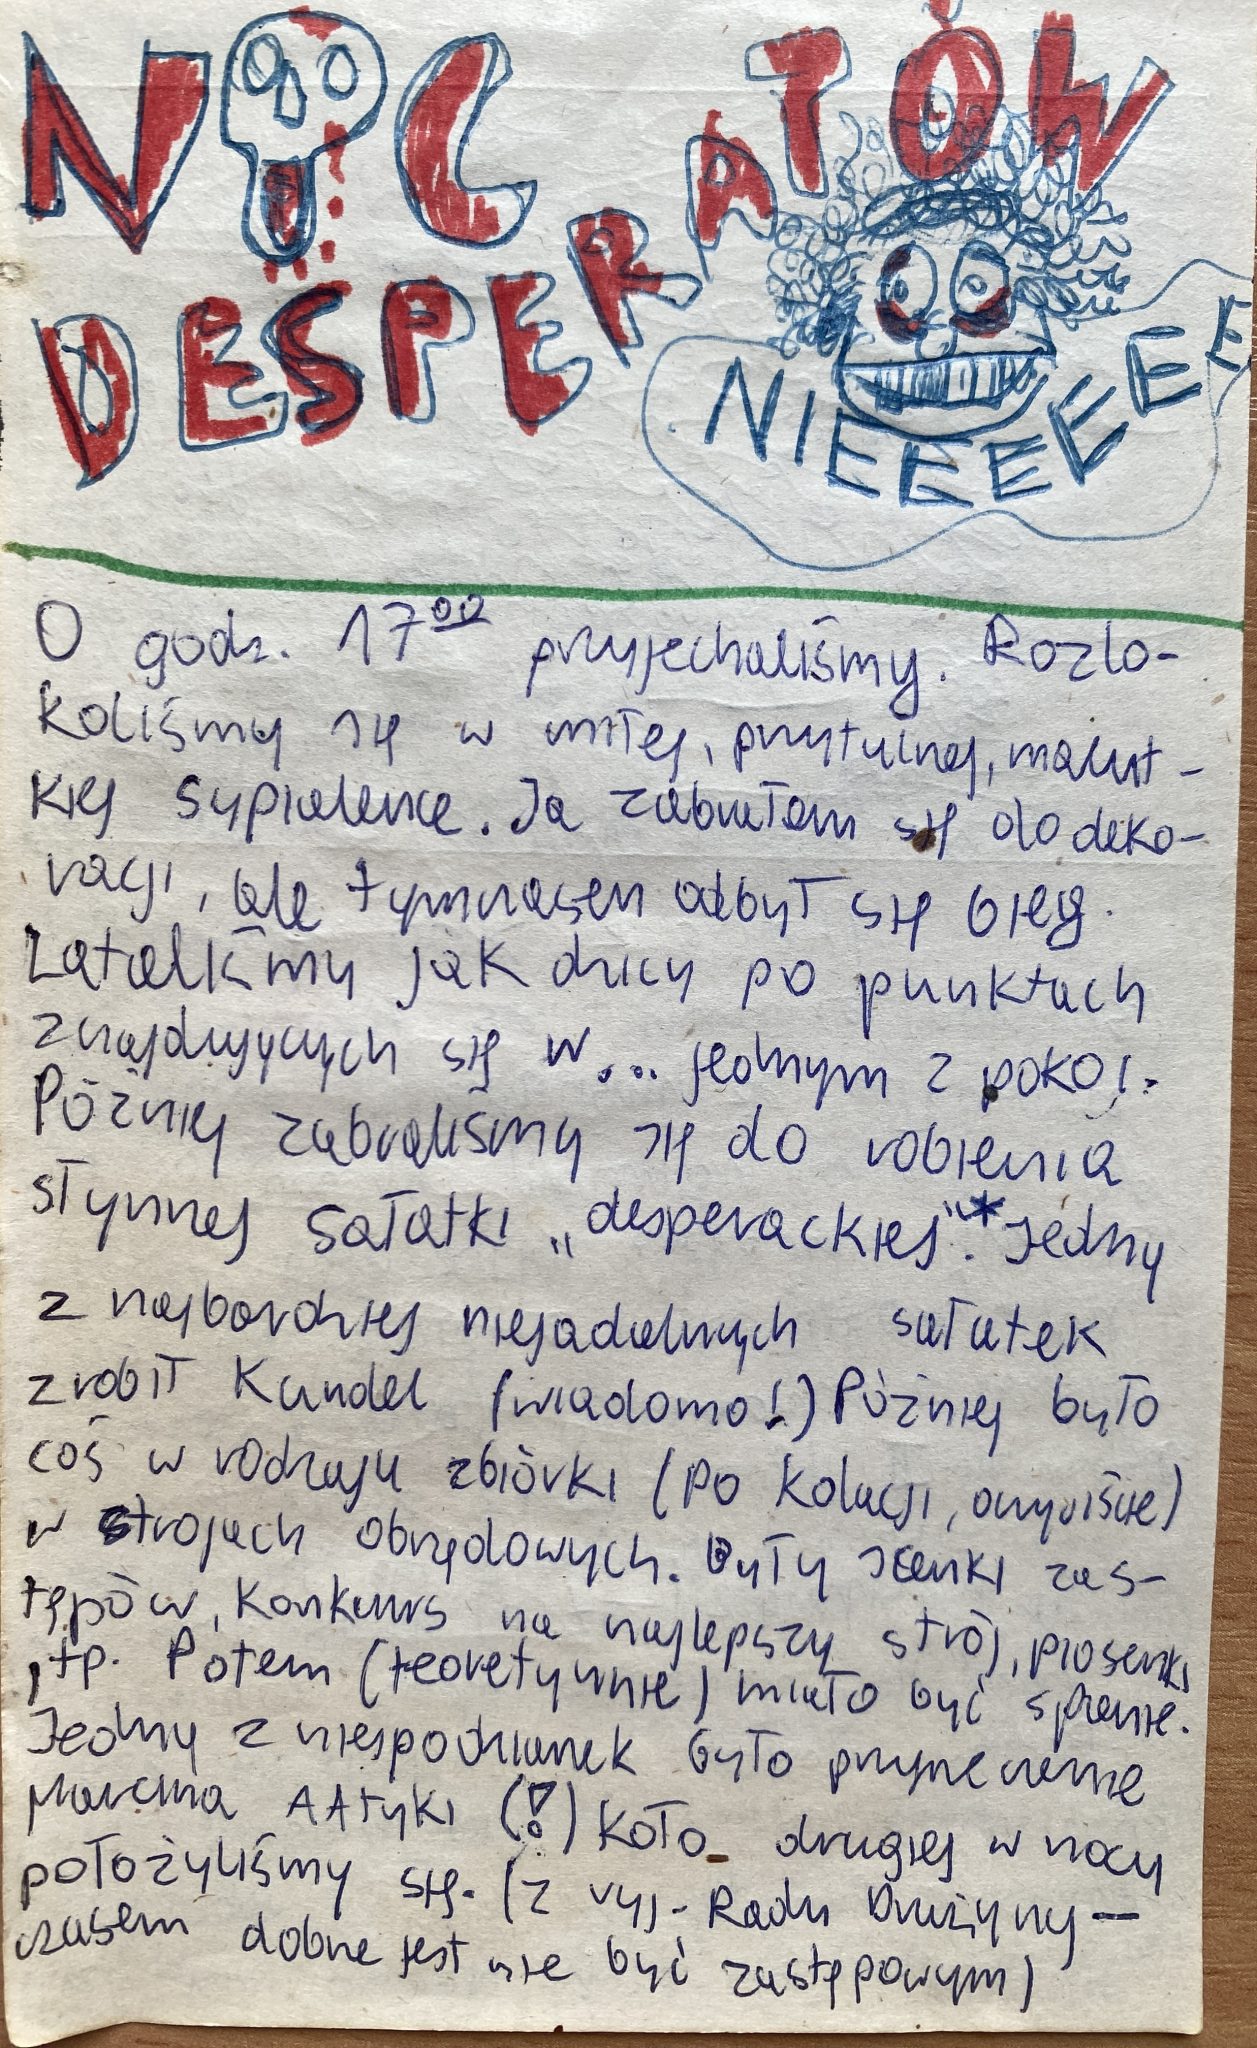 NOC
DESPERATÓW
NIEEEEEEE
O godz. 17⁰⁰ przyjechaliśmy. Rozlo-
koliśmy się w miłej, przytulnej, malut-
kiej sypialence. Ja zabrałam się do deko-
racji, ale tymczasem odbył się bieg.
Lataliśmy jak dzicy po punktach
znajdujących się w... jednym z pokoi.
Później zabraliśmy się do robienia
słynnej sałatki „desperackiej"*. Jedną
z najbardziej niejadalnych sałatek
zrobił Kundel (wiadomo!) Później było
coś w rodzaju zbiórki (po kolacji, oczywiście)
w strojach obrzędowych. Były scenki zas-
tępów, konkurs na najlepszy strój, piosenki
itp. Potem (teoretycznie) miało być spanie.
Jedną z niespodzianek było przyjechanie
Marcina (!) Koło drugiej w nocy
położyliśmy się. (z wyj. Rady Drużyny —
czasem dobrze jest nie być zastępowym)